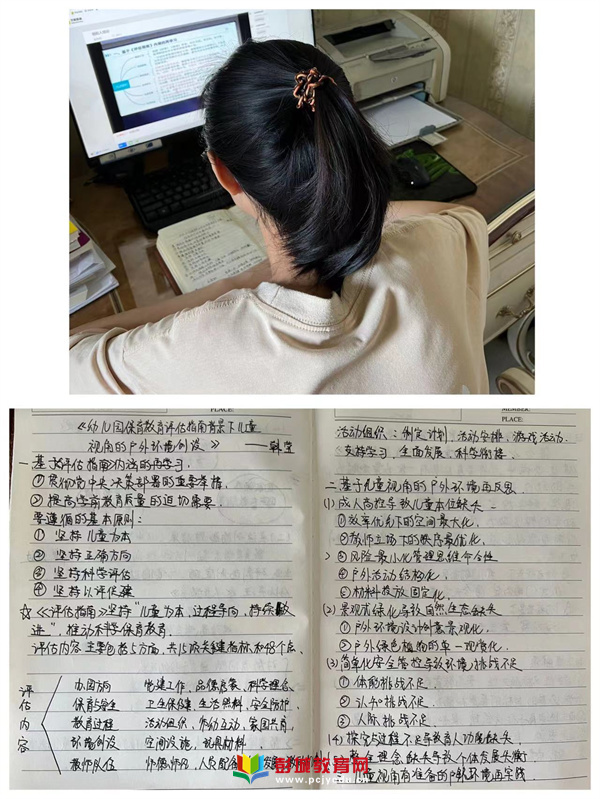 《幼儿园保育教育评估指南背景下儿童
视角的户外环境创设》——韩莹
一 基于《评估指南》内涵的再学习
① 贯彻党中央决策部署的重要举措
② 提高学前教育质量的迫切需要
要遵循的基本原则:
① 坚持儿童为本
② 坚持正确方向
③ 坚持科学评估
④ 坚持以评促建
☆《评估指南》坚持"儿童为本,过程导向,持续改
进",推动科学保育教育.
评估内容 主要包括5方面,共15项关键指标和48个点.
评估内容
办园方向 党建工作、品德启蒙、科学理念
保育与安全 卫生保健 生活照料、安全防护
教育过程 活动组织、师幼互动、家园共育
环境创设 空间设施、玩具材料
教师队伍 师德师风、人员配备
PLACE:
PLACE:
活动组织:制定计划、活动安排、游戏活动.
支持学习、全面发展、科学衔接
二 基于儿童视角的户外环境再反思
(1) 成人高控导致儿童本位缺失
① 效率优先下的空间最大化,
② 教师立场下的秩序最优化,
③ 风险最小化管理思维命令性
④ 户外活动结构化,
⑤ 材料投放固定化,
(2) 景观式绿化导致自然生态缺失
① 户外环境设计刻意景观化,
② 户外绿色植物的单一观赏化
(3) 简单化安全管控导致环境挑战不足
① 体能挑战不足
② 认知挑战不足
③ 人际挑战不足
(4) 探究与过程不足导致育人功能缺失
彭城教育网
www.pcjyw.com